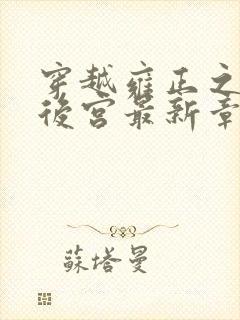 穿越雍正之
後宮最新章
蘇塔曼